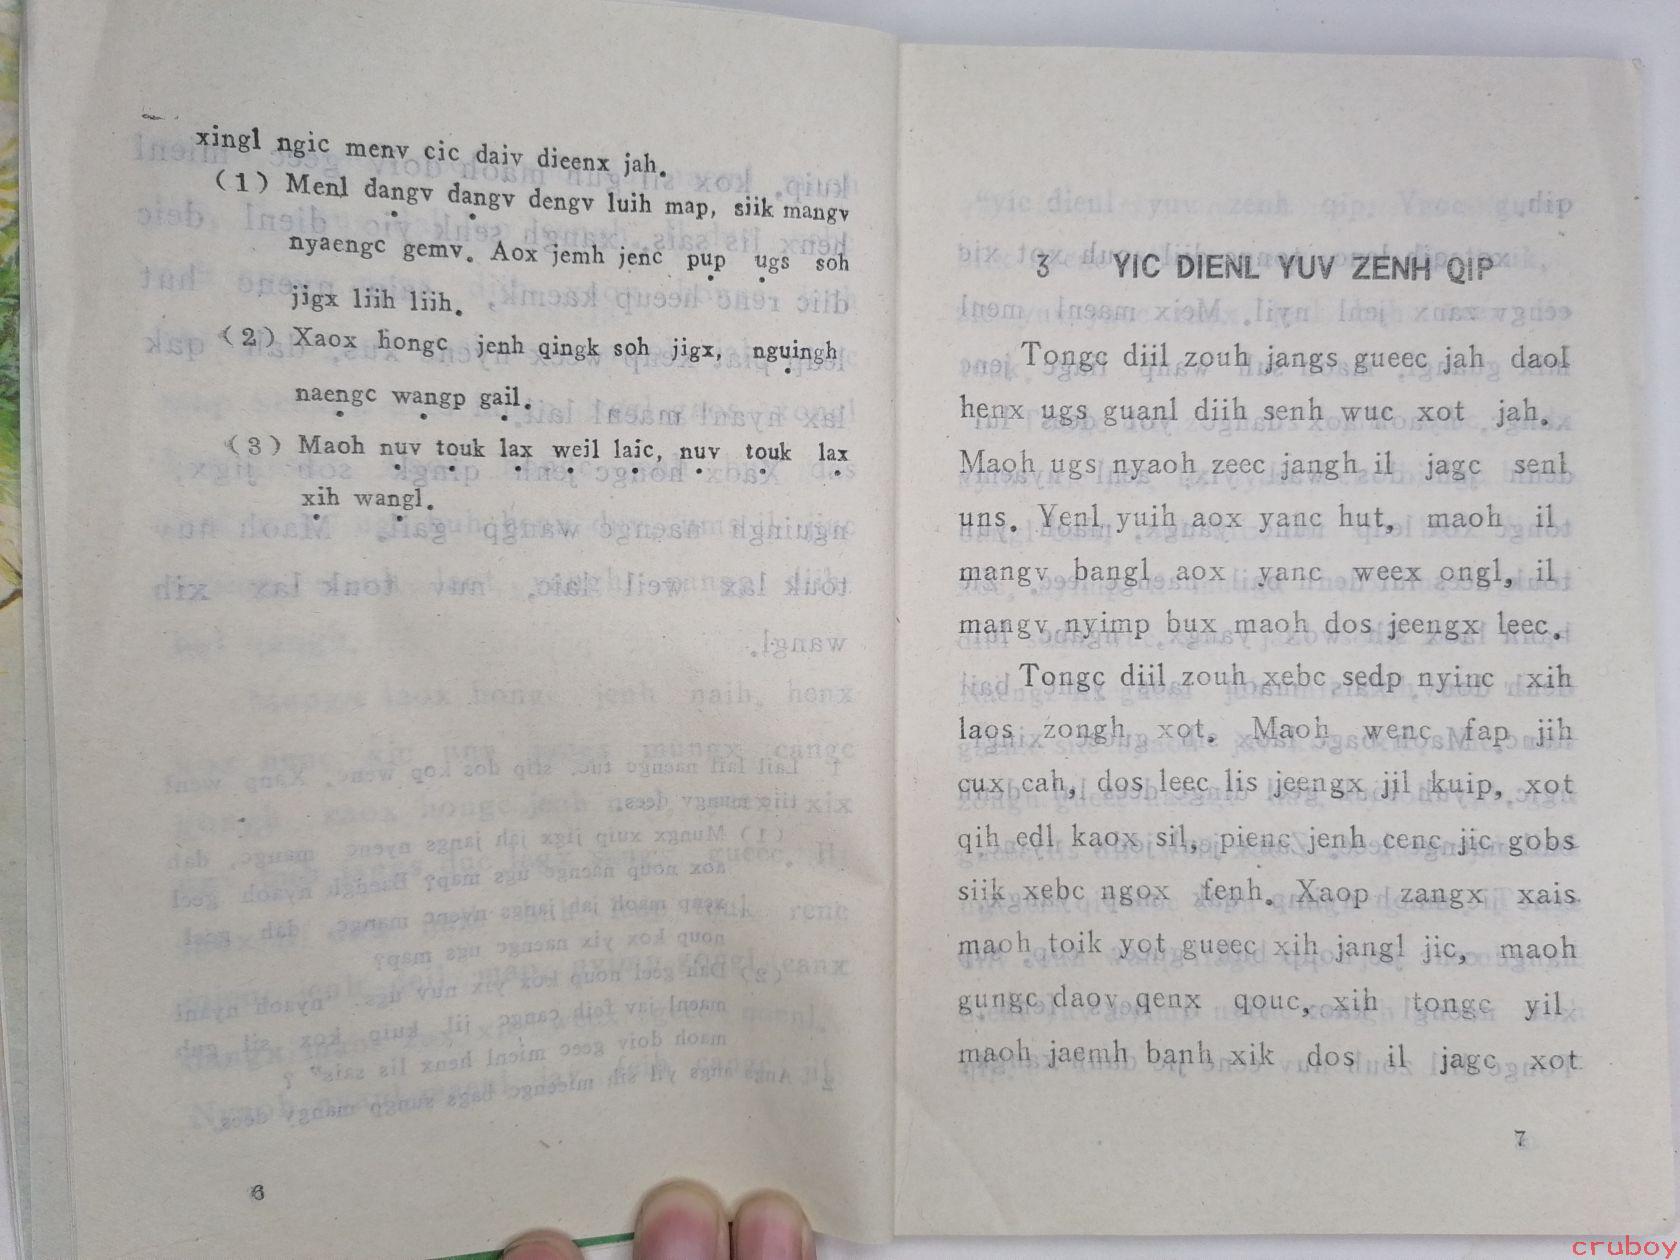 xingl ngic menv cic daiv dieenx jah.
(1) Menl dangv dangv dengv luih map, siik mangv
nyaengc gemv. Aox jemh jenc pup ugs soh
jigx liih liih.
(2) Xaox hongc jenh qingk soh jigx, nguingh
naengc wangp gail.
(3) Maoh nuv touk lax weil laic, nuv touk lax
xih wangl.
6
3 YIC DIENL YUV ZENH QIP
Tongc diil zouh jangs gueec jah daol
henx ugs guanl diih senh wuc xot jah.
Maoh ugs nyaoh zeec jangh il jagc senl
uns. Yenl yuih aox yanc hut, maoh il
mangv bangl aox yanc weex ongl, il
mangv nyimp bux maoh dos jeengx leec.
Tongc diil zouh xebc sedp nyinc xih
laos zongh xot. Maoh wenc fap jih
cux cah, dos leec lis jeengx jil kuip, xot
qih edl kaox sil, pienc jenh cenc jic gobs
siik xebc ngox fenh. Xaop zangx xais
maoh toik yot gueec xih jangl jic, maoh
gungc daov qenx qouc, xih tongc yil
maoh jaemh banh xik dos il jagc xot
7
cruboy